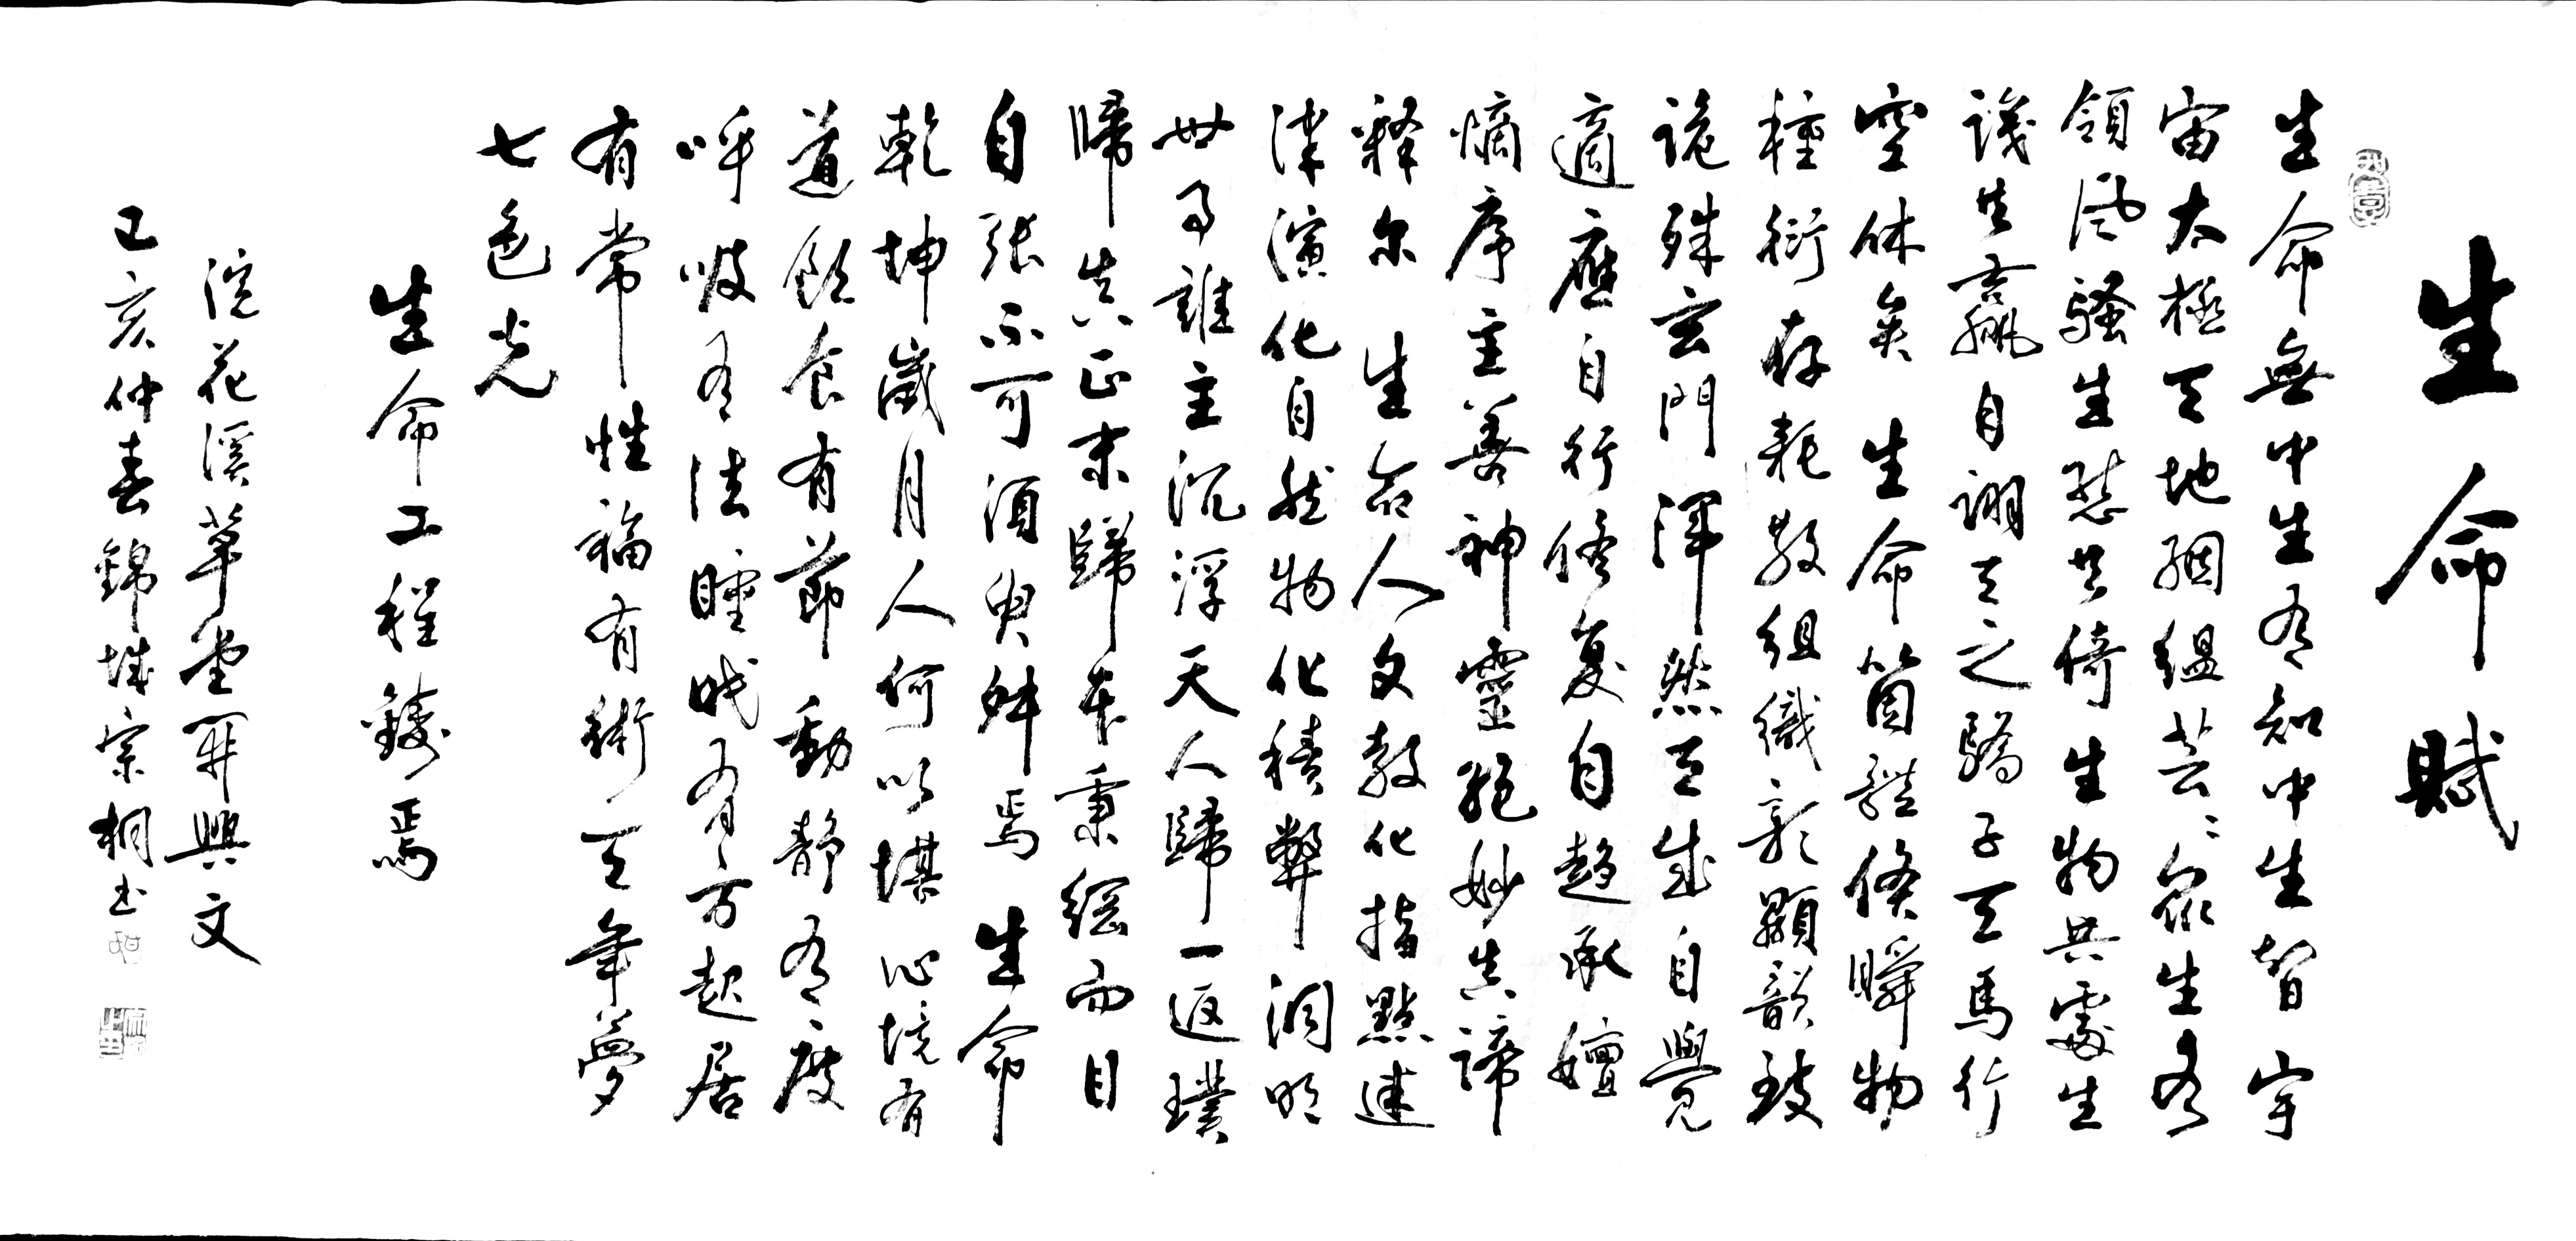 生命賦
生命無中生有知中生智宇
宙太極天地絪縕芸芸眾生各
領風騷生慈共倚生物共處生
議生贏自詡天之驕子天馬行
空休矣生命箇體倏瞬物
種衍存耗散組織彰顯韻致
詭殊玄門渾然天成自覺
適應自行修复自趨承嬗
熵序主善神靈絕妙真諦
釋尔生命人文教化指點迷
津演化自然物化積弊洞明
世事誰主沉浮天人歸一返璞
歸真正末歸本秉綱而目
自張不可須臾舛焉生命
乾坤歲月人何以堪心境有
道飲食有節動靜有度
呼吸有法睡眠有方起居
有常性福有術天年夢
七色光
生命工程鑄焉
浣花溪草堂畢興文
己亥仲春錦城宗桐书